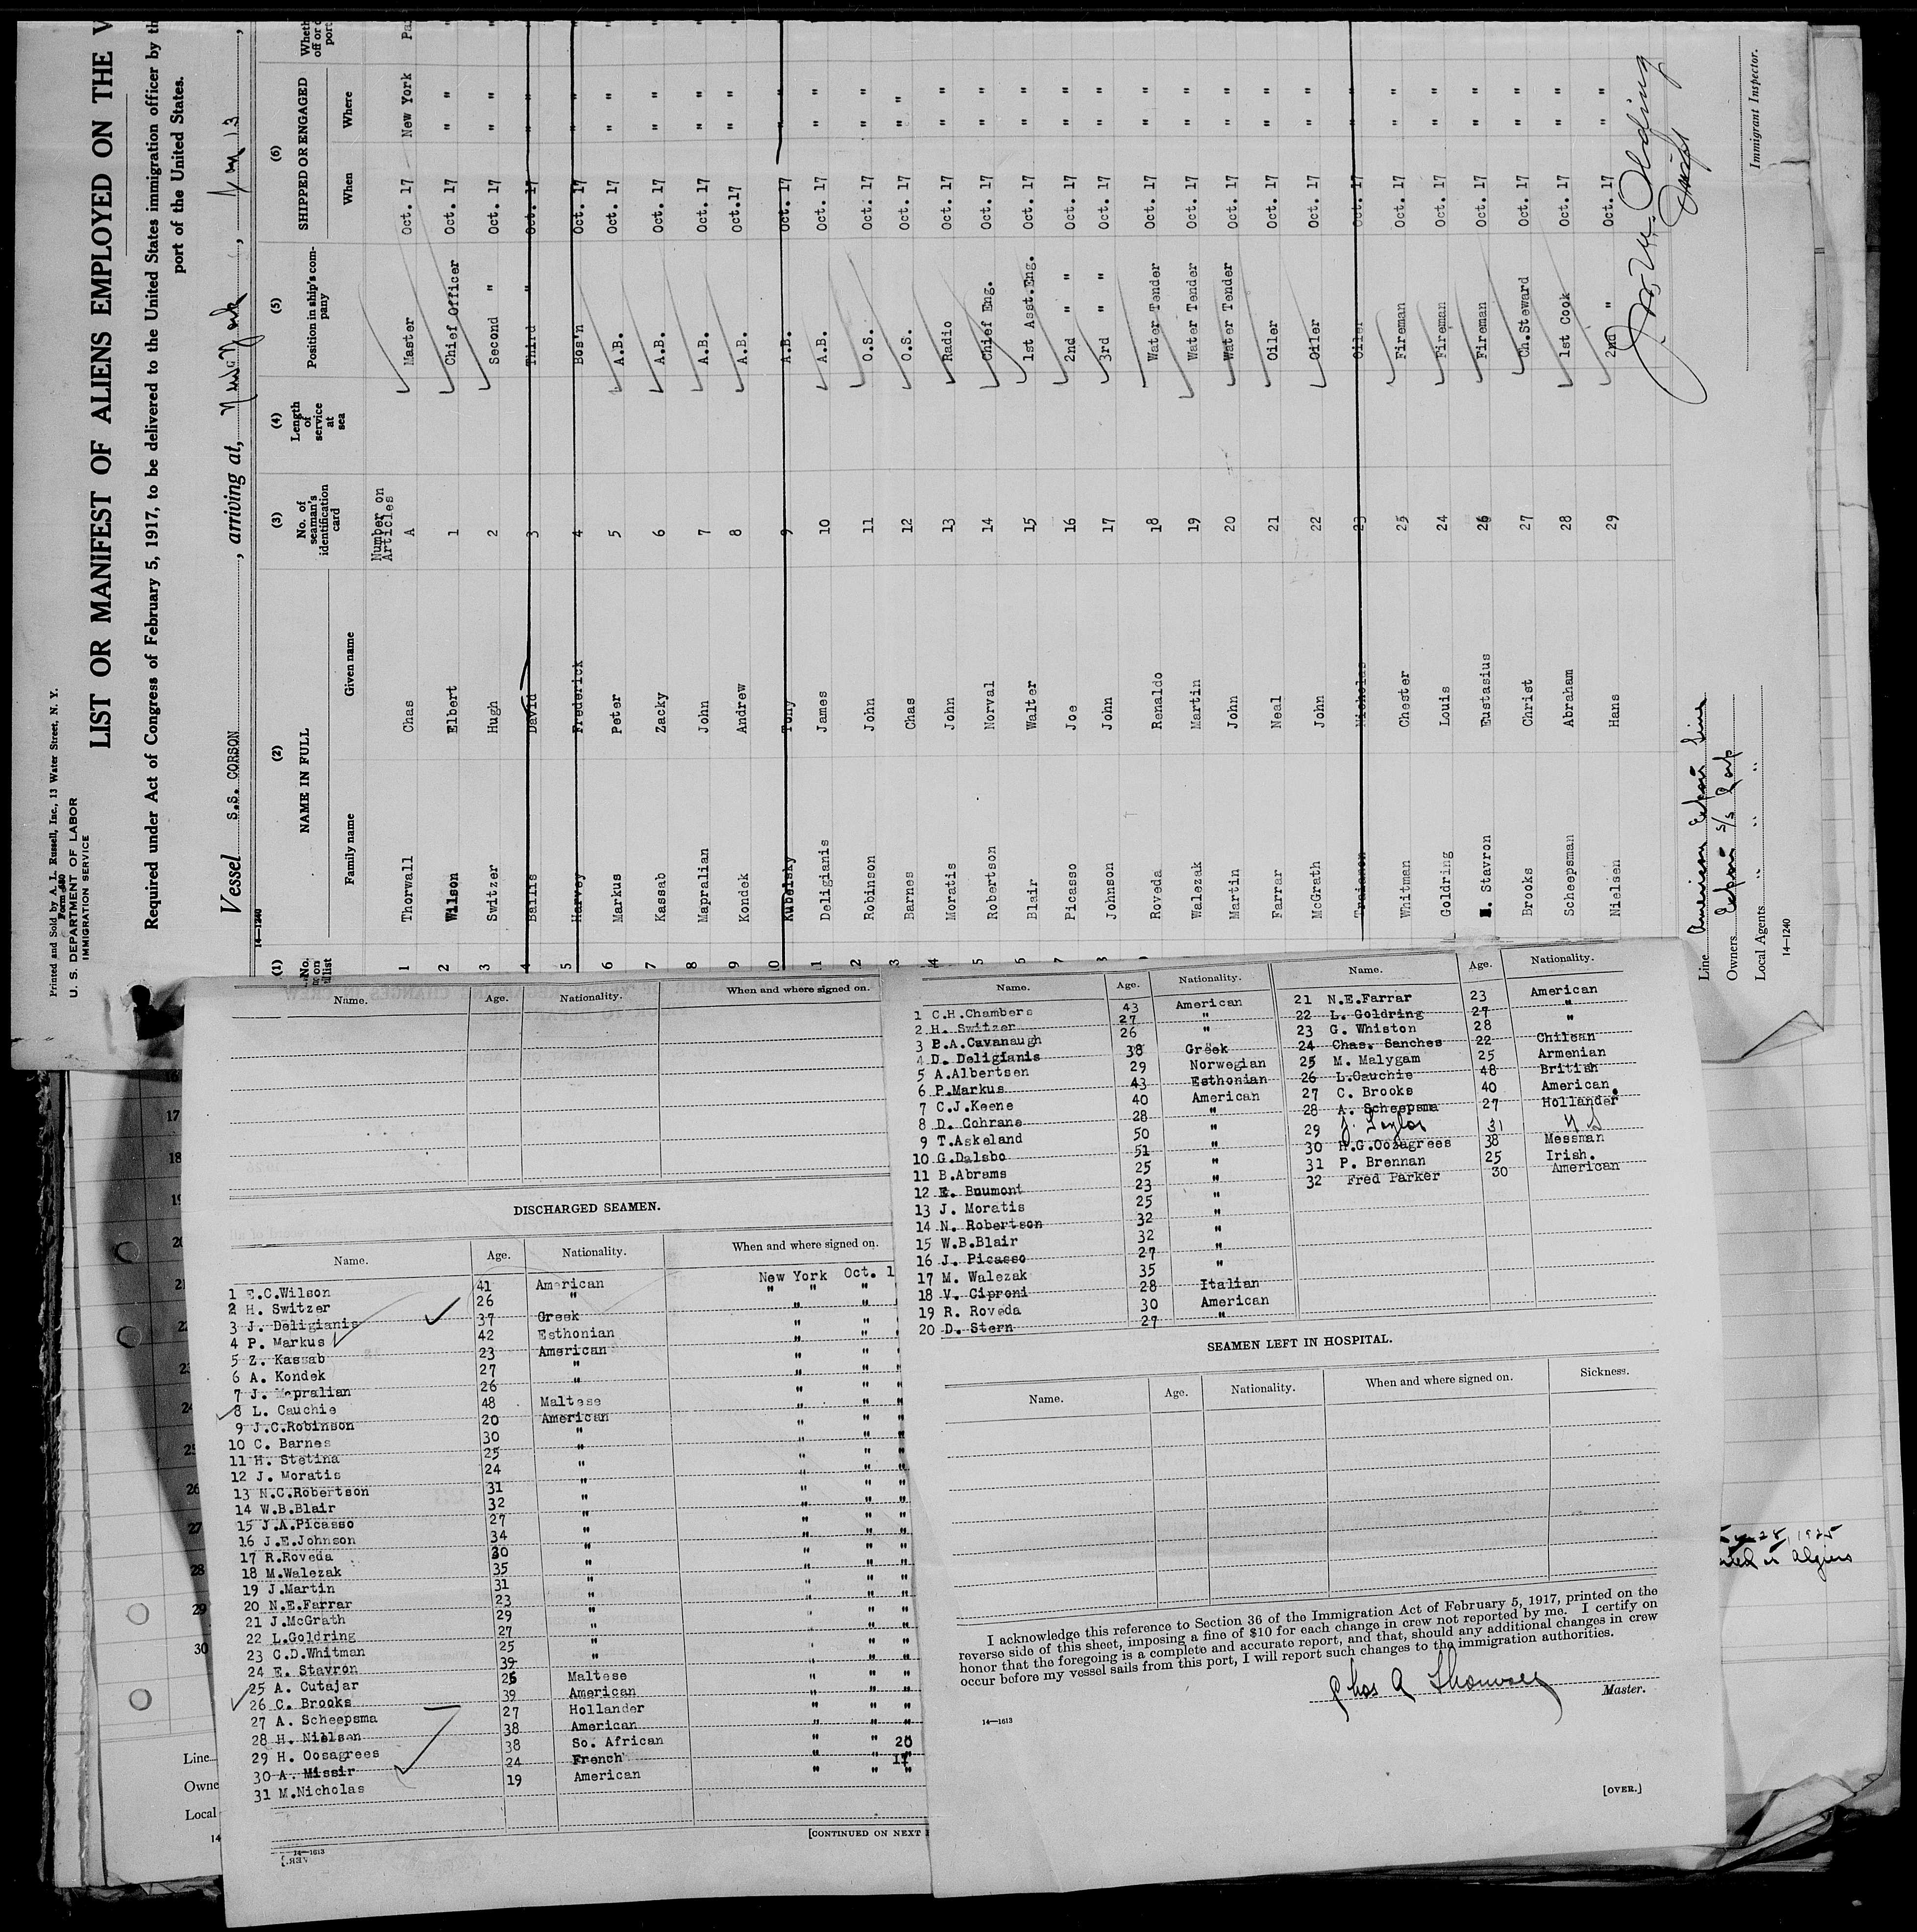 Printed and Sold by A. L. Russell, Inc., 13 Water Street, N. Y.
U. S. DEPARTMENT OF LABOR
IMMIGRATION SERVICE
LIST OR MANIFEST OF ALIENS EMPLOYED ON THE V
Required under Act of Congress of February 5, 1917, to be delivered to the United States immigration officer by th
port of the United States.
Vessel S.S. CORSON, arriving at, New York,
14—1240
(1) (2) (3) (4) (5) (6)
No. on list NAME IN FULL No. of seaman's identification card Length of service at sea Position in ship's company SHIPPED OR ENGAGED Wheth
Family name Given name When Where
Number on Articles
1 Thorwall Chas A Master Oct. 17 New York
2 Wilson Elbert 1 Chief Officer Oct. 17 " "
3 Switzer Hugh 2 Second " Oct. 17 " "
4 Dallis David 3 Third " Oct. 17 "
5 Harvey Frederick 4 Bos'n Oct. 17 "
6 Markus Peter 5 A.B. Oct. 17 " "
7 Kassab Zacky 6 A.B. Oct. 17 " "
8 Mapralian John 7 A.B. Oct. 17 " "
9 Kondek Andrew 8 A.B. Oct.17 " "
0 Kubelsky Tony 9 A.B. Oct. 17 "
1 Deligianis James 10 A.B. Oct. 17 " "
2 Robinson John 11 O.S. Oct. 17 " "
3 Barnes Chas 12 O.S. Oct. 17 " "
4 Moratis John 13 Radio Oct. 17 " "
5 Robertson Norval 14 Chief Eng. Oct. 17 " "
6 Blair Walter 15 1st Asst.Eng. Oct. 17 " "
7 Picasso Joe 16 2nd " " Oct. 17 " "
8 Johnson John 17 3rd " " Oct. 17 " "
Roveda Renaldo 18 Water Tender Oct. 17 " "
Walezak Martin 19 Water Tender Oct. 17 " "
Martin John 20 Water Tender Oct. 17 " "
Farrar Neal 21 Oiler Oct. 17 " "
McGrath John 22 Oiler Oct. 17 " "
Traianon Nicholas 23 Oiler Oct. 17 "
Whitman Chester 25 Fireman Oct. 17 " "
Goldring Louis 24 Fireman Oct. 17 " "
Stavron Eustasius 26 Fireman Oct. 17 " "
Brooks Christ 27 Ch.Steward Oct. 17 " "
Scheepsman Abraham 28 1st Cook Oct. 17 " "
Nielsen Hans 29 2nd " Oct. 17 " "
Line American Export Lines
Owners Export S/S Corp
Local Agents " "
14—1240
Immigrant Inspector.
Name. Age. Nationality. When and where signed on.
DISCHARGED SEAMEN.
Name. Age. Nationality. When and where signed on.
1 E.C.Wilson 41 American New York Oct. 1
2 H. Switzer 26 " " " "
3 J. Deligianis 37 Greek " "
4 P. Markus 42 Esthonian " "
5 Z. Kassab 23 American " "
6 A. Kondek 27 " " "
7 J. Mapralian 26 " " "
8 L. Cauchie 48 Maltese " " "
9 J.C.Robinson 20 American " " "
10 C. Barnes 30 " " " "
11 H. Stetina 25 " " " "
12 J. Moratis 24 " " " "
13 N.C.Robertson 31 " " " "
14 W.B.Blair 32 " " " "
15 J.A.Picasso 27 " " " "
16 J.E.Johnson 34 " " " "
17 R.Roveda 30 " " " "
18 M.Walezak 35 " " " "
19 J.Martin 31 " " " "
20 N.E.Farrar 23 " " " "
21 J.McGrath 29 " " " "
22 L.Goldring 27 " " " "
23 C.D.Whitman 25 " " " "
24 E. Stavron 39 " " " "
25 A. Cutajar 26 Maltese " " "
26 C. Brooks 39 American " " "
27 A. Scheepsma 27 Hollander " " "
28 H. Nielsen 38 American " " "
29 H. Oosagrees 38 So. African " " 20
30 A. Missir 24 French " " 17
31 M.Nicholas 19 American " " "
[CONTINUED ON NEXT
14—1613
Name. Age. Nationality. Name. Age. Nationality.
1 C.H.Chambers 43 American 21 N.E.Farrar 23 American
2 H. Switzer 27 " 22 L. Goldring 27 "
3 B.A.Cavanaugh 26 " 23 G. Whiston 28 "
4 D. Deligianis 38 Greek 24 Chas. Sanches 22 Chilean
5 A.Albertsen 29 Norwegian 25 M. Malygam 25 Armenian
6 P.Markus 43 Esthonian 26 L.Cauchie 48 British
7 C.J.Keene 40 American 27 C. Brooks 40 American.
8 D. Cohrane 28 " 28 A. Scheepsma 27 Hollander
9 T.Askeland 50 " 29 J. Taylor 31 U S
10 G.Dalsbo 51 " 30 H.G.Oozagrees 38 Messman
11 B.Abrams 25 " 31 P. Brennan 25 Irish.
12 E. Buumont 23 " 32 Fred Parker 30 American
13 J. Moratis 25 "
14 N. Robertson 32 "
15 W.B.Blair 32 "
16 J. Picasso 27 "
17 M. Walezak 35 "
18 V. Ciproni 28 Italian
19 R. Roveda 30 American
20 D. Stern 27 "
SEAMEN LEFT IN HOSPITAL.
Name. Age. Nationality. When and where signed on. Sickness.
I acknowledge this reference to Section 36 of the Immigration Act of February 5, 1917, printed on the
reverse side of this sheet, imposing a fine of $10 for each change in crew not reported by me. I certify on
honor that the foregoing is a complete and accurate report, and that, should any additional changes in crew
occur before my vessel sails from this port, I will report such changes to the immigration authorities.
Chas A Thorwall Master.
14—1613
[OVER.]
28, 1925
in Algiers
16
17
18
19
20
21
22
23
24
25
26
27
28
29
30
Line
Owne
Local
14